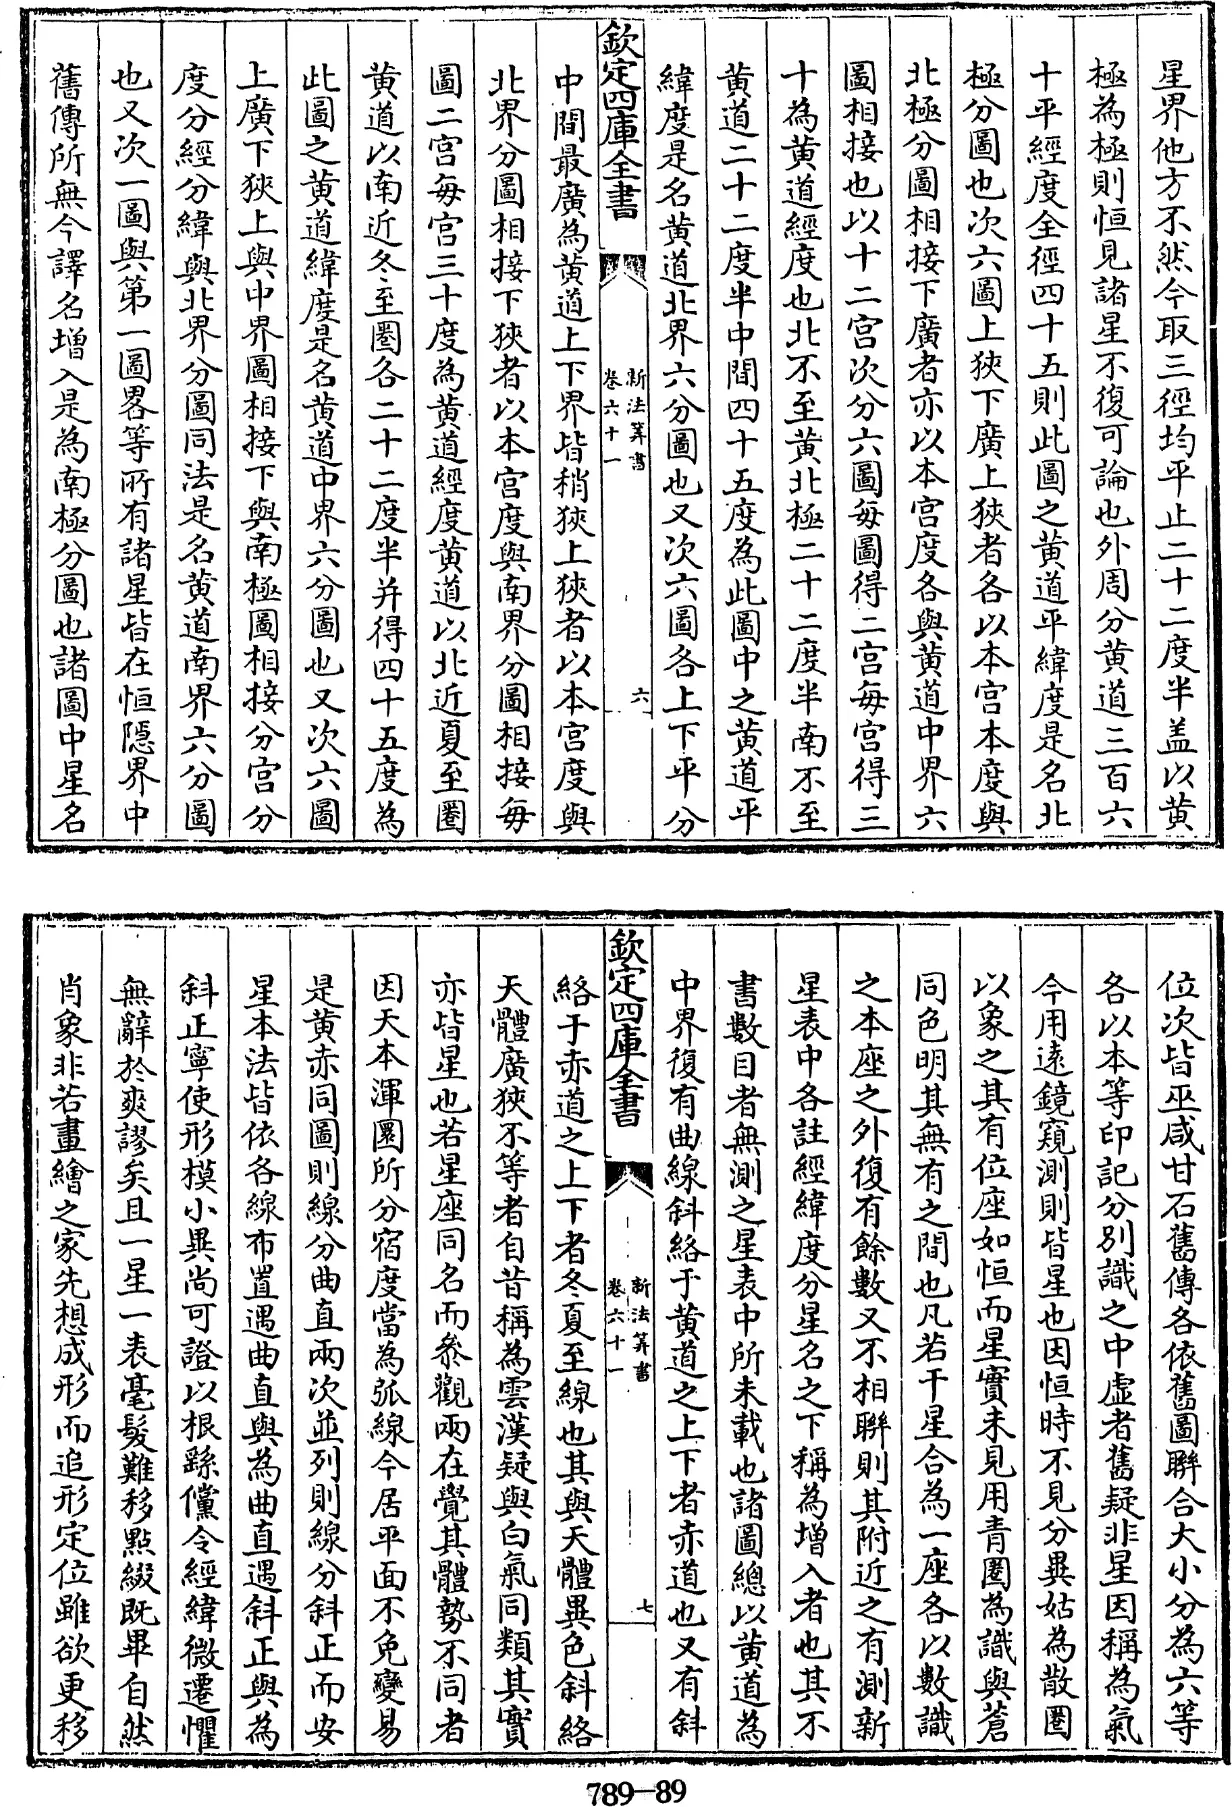 星界他方不然今取三徑均平止二十二度半盖以黄
極為極則恒見諸星不復可論也外周分黄道三百六
十平經度全徑四十五則此圖之黄道平緯度是名北
極分圖也次六圖上狹下廣上狹者各以本宫本度與
北極分圖相接下廣者亦以本宫度各與黄道中界六
圖相接也以十二宫次分六圖每圖得二宫每宫得三
十為黄道經度也北不至黄北極二十二度半南不至
黄道二十二度半中間四十五度為此圖中之黄道平
緯度是名黄道北界六分圖也又次六圖各上下平分
欽定四庫全書
新法算書
卷六十一
六
中間最廣為黄道上下界皆稍狹上狹者以本宫度與
北界分圖相接下狹者以本宫度與南界分圖相接每
圖二宫每宫三十度為黄道經度黄道以北近夏至圏
黄道以南近冬至圏各二十二度半并得四十五度為
此圖之黄道緯度是名黄道中界六分圖也又次六圖
上廣下狹上與中界圖相接下與南極圖相接分宫分
度分經分緯與北界分圖同法是名黄道南界六分圖
也又次一圖與第一圖畧等所有諸星皆在恒隱界中
舊傳所無今譯名增入是為南極分圖也諸圖中星名
位次皆巫咸甘石舊傳各依舊圖聨合大小分為六等
各以本等印記分别識之中虚者舊疑非星因稱為氣
今用遠鏡窺測則皆星也因恒時不見分異姑為散圏
以象之其有位座如恒而星實未見用青圏為識與蒼
同色明其無有之間也凡若干星合為一座各以數識
之本座之外復有餘數又不相聨則其附近之有測新
星表中各註經緯度分星名之下稱為増入者也其不
書數目者無測之星表中所未載也諸圖總以黄道為
中界復有曲線斜絡于黄道之上下者赤道也又有斜
欽定四庫全書
新法算書
卷六十一
七
絡于赤道之上下者冬夏至線也其與天體異色斜絡
天體廣狹不等者自昔稱為雲漢疑與白氣同類其實
亦皆星也若星座同名而叅觀兩在覺其體勢不同者
因天本渾圓所分宿度當為弧線今居平面不免變易
是黄赤同圖則線分曲直兩次並列則線分斜正而安
星本法皆依各線布置遇曲直與為曲直遇斜正與為
斜正寧使形模小異尚可證以根繇儻令經緯微遷懼
無辭於爽謬矣且一星一表毫髮難移點綴既畢自然
肖象非若畫繪之家先想成形而追形定位雖欲更移
789—89